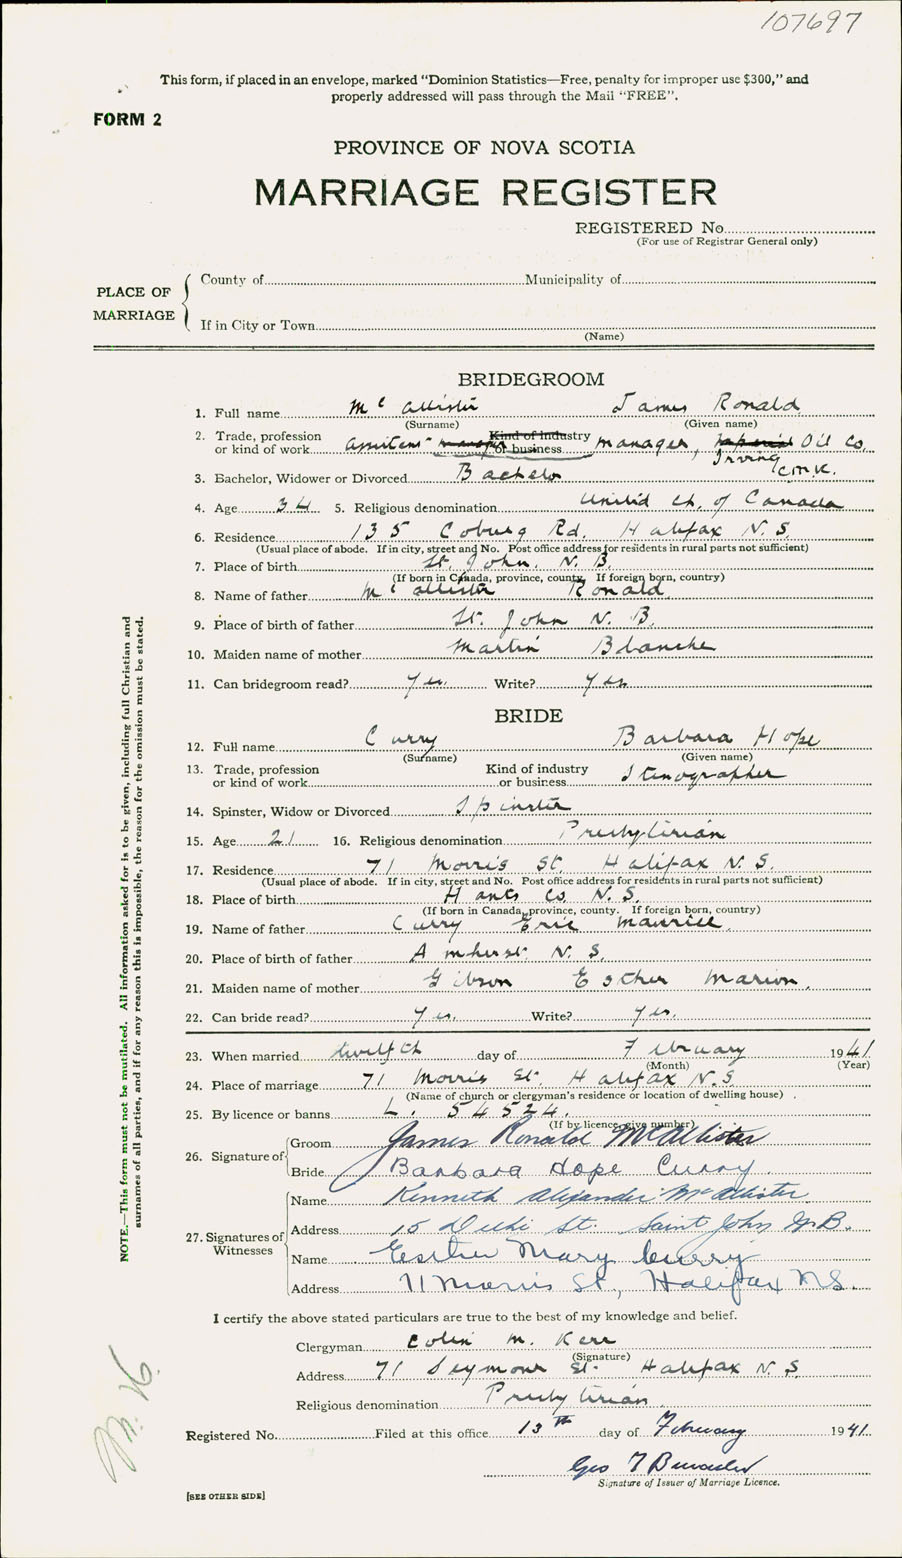 107697
This form, if placed in an envelope, marked “Dominion Statistics—Free, penalty for improper use $300,” and
properly addressed will pass through the Mail “FREE”.
FORM 2
PROVINCE OF NOVA SCOTIA
MARRIAGE REGISTER
REGISTERED No.
(For use of Registrar General only)
PLACE OF MARRIAGE
County of Municipality of
If in City or Town
(Name)
BRIDEGROOM
1. Full name McAllister James Ronald
(Surname) (Given name)
2. Trade, profession or kind of work manager Kind of industry or business manager, Imperial Oil Co.
Irving C.M.K.
3. Bachelor, Widower or Divorced Bachelor
4. Age 34 5. Religious denomination United Ch. of Canada
6. Residence 135 Coburg Rd. Halifax N.S.
(Usual place of abode. If in city, street and No. Post office address for residents in rural parts not sufficient)
7. Place of birth St. John, N.B.
(If born in Canada, province, county. If foreign born, country)
8. Name of father McAllister Ronald
9. Place of birth of father St. John N.B.
10. Maiden name of mother Martin Blanche
11. Can bridegroom read? Yes. Write? Yes
BRIDE
12. Full name Curry Barbara Hope
(Surname) (Given name)
13. Trade, profession or kind of work Kind of industry or business Stenographer
14. Spinster, Widow or Divorced Spinster
15. Age 21 16. Religious denomination Presbyterian
17. Residence 71 Morris St. Halifax N.S.
(Usual place of abode. If in city, street and No. Post office address for residents in rural parts not sufficient)
18. Place of birth Hants Co. N.S.
(If born in Canada, province, county. If foreign born, country)
19. Name of father Curry Eric Maurice
20. Place of birth of father Amherst N.S.
21. Maiden name of mother Gibson Esther Marion.
22. Can bride read? Yes. Write? Yes.
23. When married twelfth day of February 1941
(Month) (Year)
24. Place of marriage 71 Morris St. Halifax N.S.
(Name of church or clergyman's residence or location of dwelling house)
25. By licence or banns L. 54524.
(If by licence, give number)
26. Signature of
Groom James Ronald McAllister
Bride Barbara Hope Curry
27. Signatures of Witnesses
Name Kenneth Alexander McAllister
Address 15 St. Saint John N.B.
Name Esther Mary Curry
Address 71 Morris St., Halifax N.S.
I certify the above stated particulars are true to the best of my knowledge and belief.
Clergyman Colin M. Kerr
(Signature)
Address 71 Seymour St. Halifax N.S.
Religious denomination Presbyterian
Registered No. Filed at this office 13th day of February 1941
Geo
Signature of Issuer of Marriage Licence.
[SEE OTHER SIDE]
NOTE.—This form must not be mutilated. All information asked for is to be given, including full Christian and
surnames of all parties, and if for any reason this is impossible, the reason for the omission must be stated.